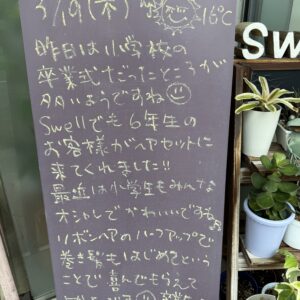 3/19(木) 18℃
昨日は小学校の
卒業式だったところが
多いようですね
Swellでも6年生の
お客様がヘアセットに
来てくれました!!
最近は小学生もみんな
オシャレでかわいいですよね
リボンヘアのハーフアップで
巻き髪もはじめてという
ことで喜んでもらえて
Sw